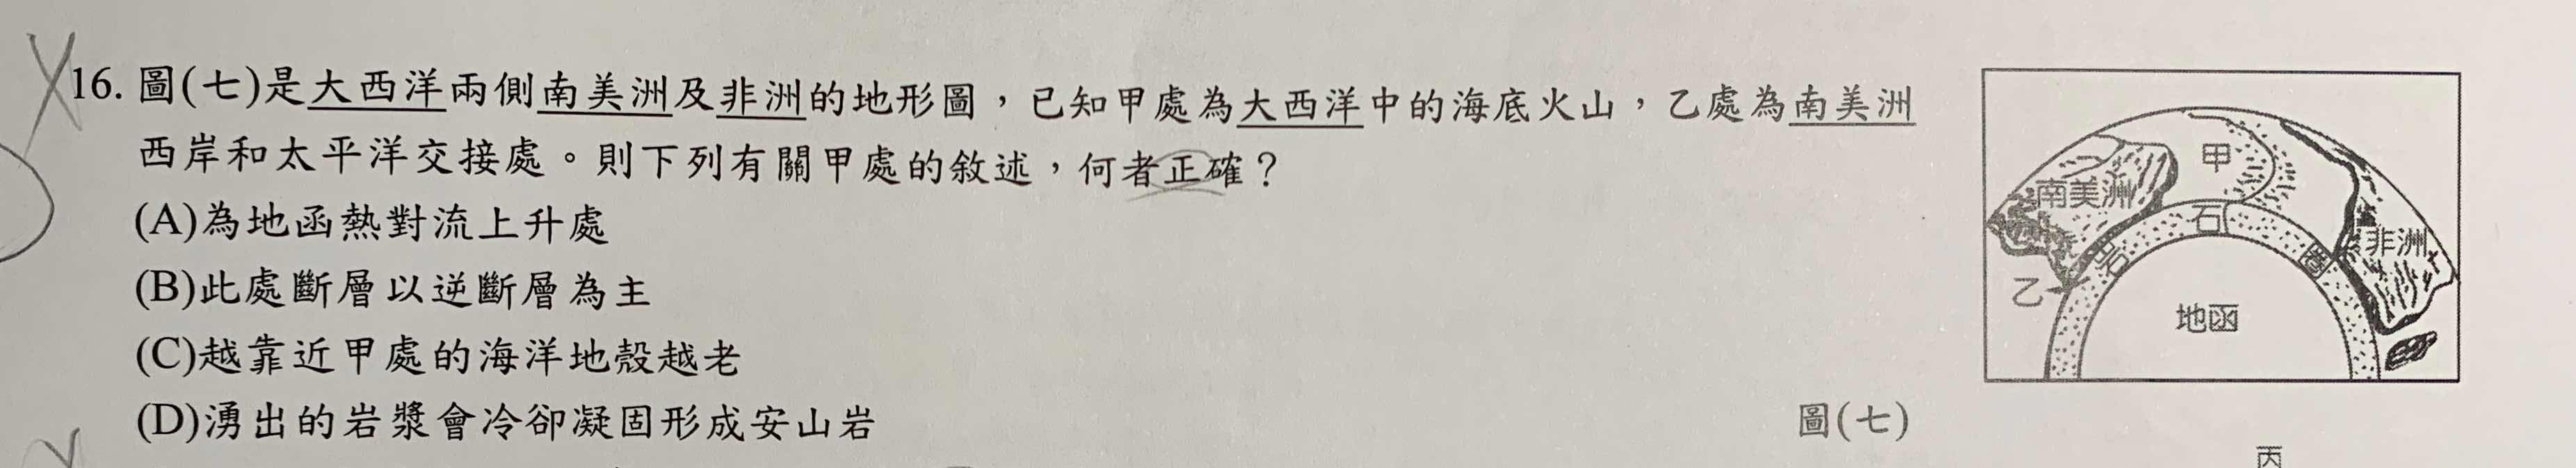 16. 圖(七)是大西洋兩側南美洲及非洲的地形圖，已知甲處為大西洋中的海底火山，乙處為南美洲
西岸和太平洋交接處。則下列有關甲處的敘述，何者正確？
(A)為地函熱對流上升處
(B)此處斷層以逆斷層為主
(C)越靠近甲處的海洋地殼越老
(D)湧出的岩漿會冷卻凝固形成安山岩
甲
南美洲
石
非洲
岩
圈
乙
地函
圖(七)
丙